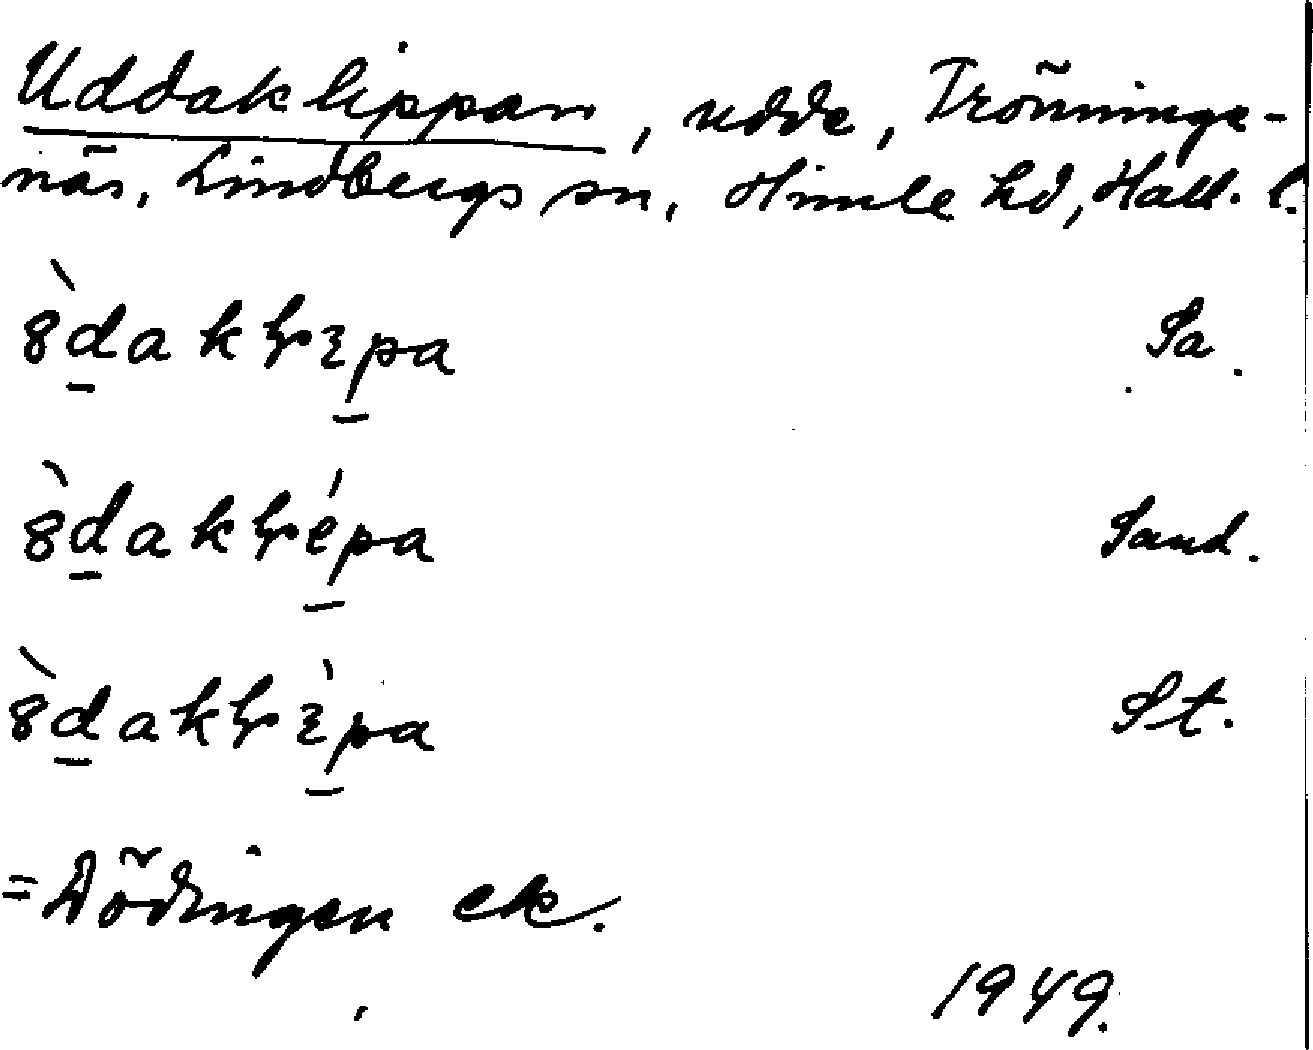 Uddaklippan, udde, Trönninge-
näs, Lindbergs sn, Himle hd, Hall. l.
8̀d̲aklrɛp̲a Sa.
8̀d̲aklrép̲a Sand.
8̀d̲aklrɛ́p̲a St.
= Dödingen ek.
1949.